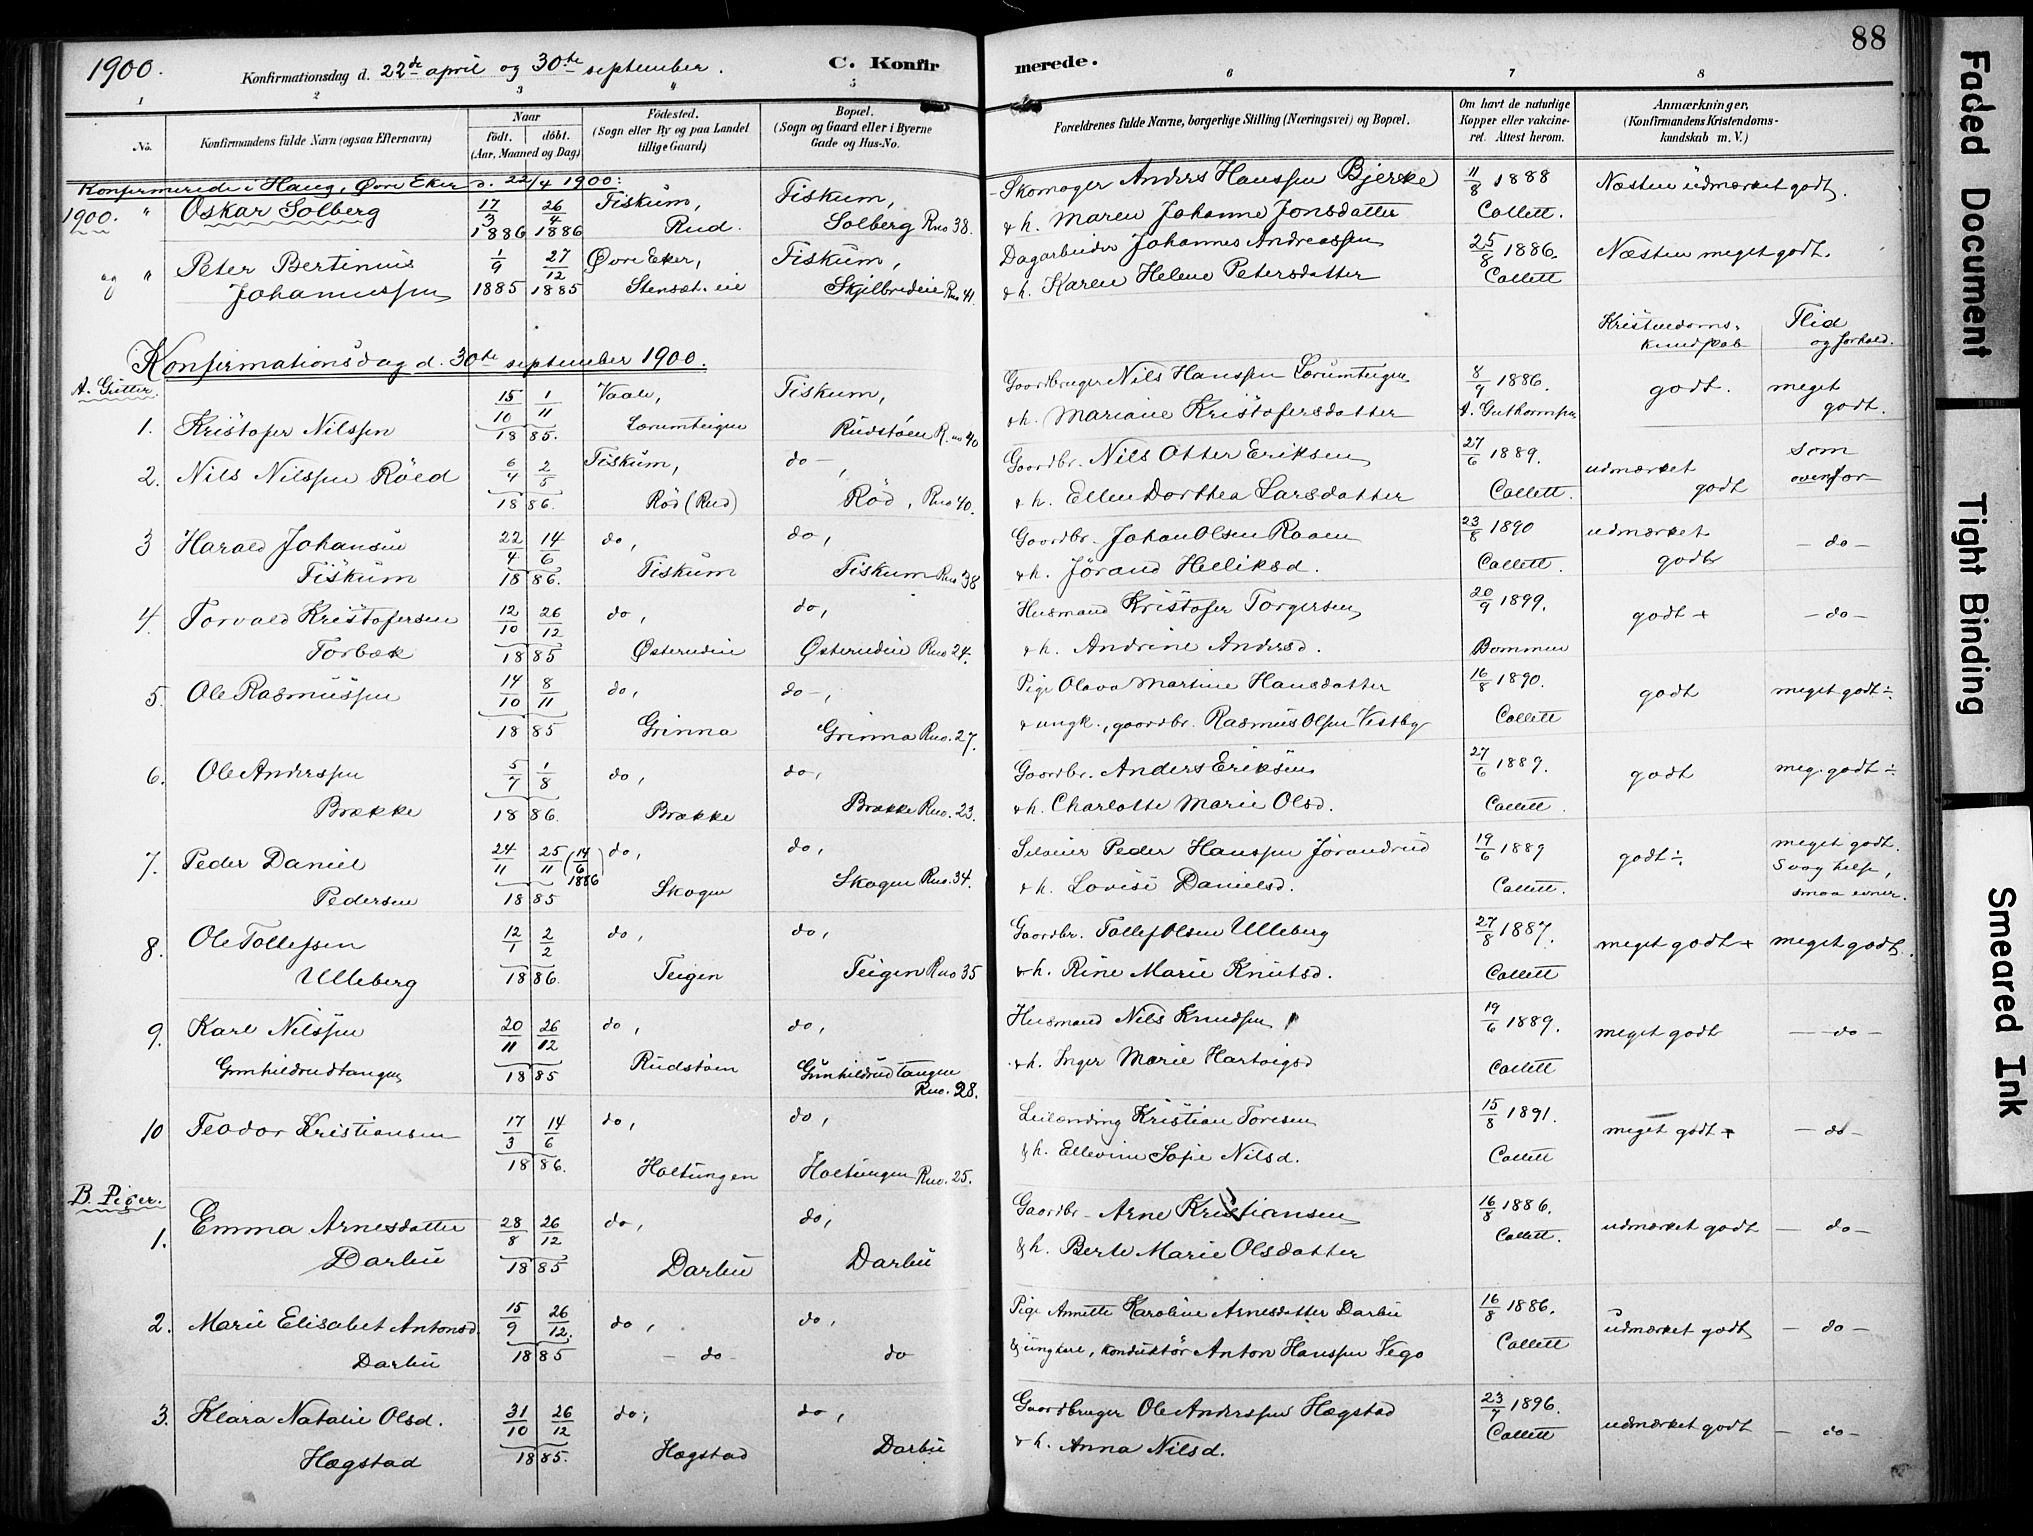 88
1900.
Konfirmationsdag d. 22de april og 30te september.
C. Konfir
merede.
1 2 3 4 5 6 7 8
No.
Konfirmandens fulde Navn (ogsaa Efternavn)
Naar
født. døbt.
(Aar, Maaned og Dag)
Fødested.
(Sogn eller By og paa Landet
tillige Gaard)
Bopæl.
(Sogn og Gaard eller i Byerne
Gade og Hus-No.
Forældrenes fulde Navne, borgerlige Stilling (Næringsvei) og Bopæl.
Om havt de naturlige
Kopper eller vakcine-
ret. Attest herom.
Anmærkninger,
(Konfirmandens Kristendoms-
kundskab m. V.)
Konfirmerede i Haug, Øvre Eker d. 22/4 1900:
1900. " Oskar Solberg 17/3 1886 26/4 1886 Fiskum, Rud. Fiskum, Solberg Rno 38.
Skomager Anders Hanssen Bjerke
& h. Maren Johanne Jonsdatter
11/8 1888 Collett.
Næsten udmærket godt.
og " Peter Bertinius Johannessen 1/9 1885 27/12 1885 Øvre Eker, Stensæt. eie Fiskum, Skjelbredeie Rno 41
Dagarbeider Johannes Andreassen
& h. Karen Helene Petersdatter
25/8 1886. Collett
Næsten meget godt.
Kristendoms-
kundskab
Flid
og forhold.
Konfirmationsdag d. 30te september 1900.
A. Gutter
1. Kristofer Nilssen 15/10 1/11 1885. Vaale, Lærumteigen Fiskum, Rudstøen R.no 40
Gaardbruger Nils Hanssen Lærumteigen
& h. Mariane Kristofersdatter
8/9 1886. A. Guthormsen
godt. meget godt.
2. Nils Nilssen Röed 6/4 2/5 1886. Fiskum, Röd (Rud) do -, Röd, Rno 40.
Gaardbr. Nils Otter Eriksen
& h. Ellen Dorthea Larsdatter
27/6 1889. Collett.
udmærket godt som ovenfor
3 Harald Johansen Fiskum 22/4 14/6 1886. do, Fiskum do, Fiskum Rno 38
Gaardbr. Johan Olsen Raaen
& h. Jörand Helliksd.
23/8 1890 Collett.
udmærket godt - do -
4. Torvald Kristofersen Torbæk 12/10 26/12 1885 do, Østerudeie do, Østerudeie Rno 24.
Husmand Kristofer Torgersen
& h. Andrine Andersd.
20/9 1899. Bommen
godt + - do -
5. Ole Rasmussen 14/10 8/11 1885 do, Grinna do -, Grinna Rno. 27.
Pige Olava Martine Hansdatter
& ungk., gaardbr. Rasmus Olsen Vestby
16/8 1890. Collett
godt meget godt ÷
6. Ole Anderssen Brække 5/7 1/8 1886. do, Brække do, Brække Rno. 23.
Gaardbr. Anders Eriksen
& h. Charlotte Marie Olsd.
27/6 1889. Collett.
godt meg. godt ÷
7. Peder Daniel Pedersen 24/11 25/11 (14/6 1886) 1885 do, Skogen do, Skogen Rno. 34.
Selveier Peder Hanssen Jörandrud
& h. Lovise Danielsd.
19/6 1889 Collett.
godt ÷ meget godt. Svag helse, smaa evner.
8. Ole Tollefsen Ulleberg 12/1 2/2 1886. do, Teigen do, Teigen Rno 35
Gaardbr. Tollef Olsen Ulleberg
& h. Rine Marie Knutsd.
27/8 1887. Collett
meget godt + meget godt.
9. Karl Nilssen Gunhildrudtangen 20/11 26/12 1885 do, Rudstøen do, Gunhildrudtangen Rno. 28.
Husmand Nils Knudsen
& h. Inger Marie Hartvigsd
19/6 1889. Collett
meget godt - do -
10 Teodor Kristiansen 17/3 14/6 1886. do, Holtungen do, Holtungen Rno. 25.
Leilænding Kristian Toresen
& h. Ellevine Sofie Nilsd.
15/8 1891. Collett
meget godt + - do -
B. Piger.
1. Emma Arnesdatter Darbu 28/8 26/12 1885 do, Darbu do, Darbu
Gaardbr. Arne Kristiansen
& h. Berte Marie Olsdatter
16/8 1886. Collett.
udmærket godt - do -
2. Marie Elisabet Antonsd. Darbu 15/9 26/12. 1885 do, - do - do, do
Pige Annette Karoline Arnesdatter Darbu
& ungkarl, konduktör Anton Hanssen Vego
16/8 1886. Collett
udmærket godt - do -
3. Klara Natalie Olsd. Hægstad 31/10 26/12 1885. do, Hægstad do, Darbu
Gaardbruger Ole Anderssen Hægstad
& h. Anna Nilsd.
23/7 1896. Collett
udmærket godt - do -
Faded Document
Tight Binding
Smeared Ink